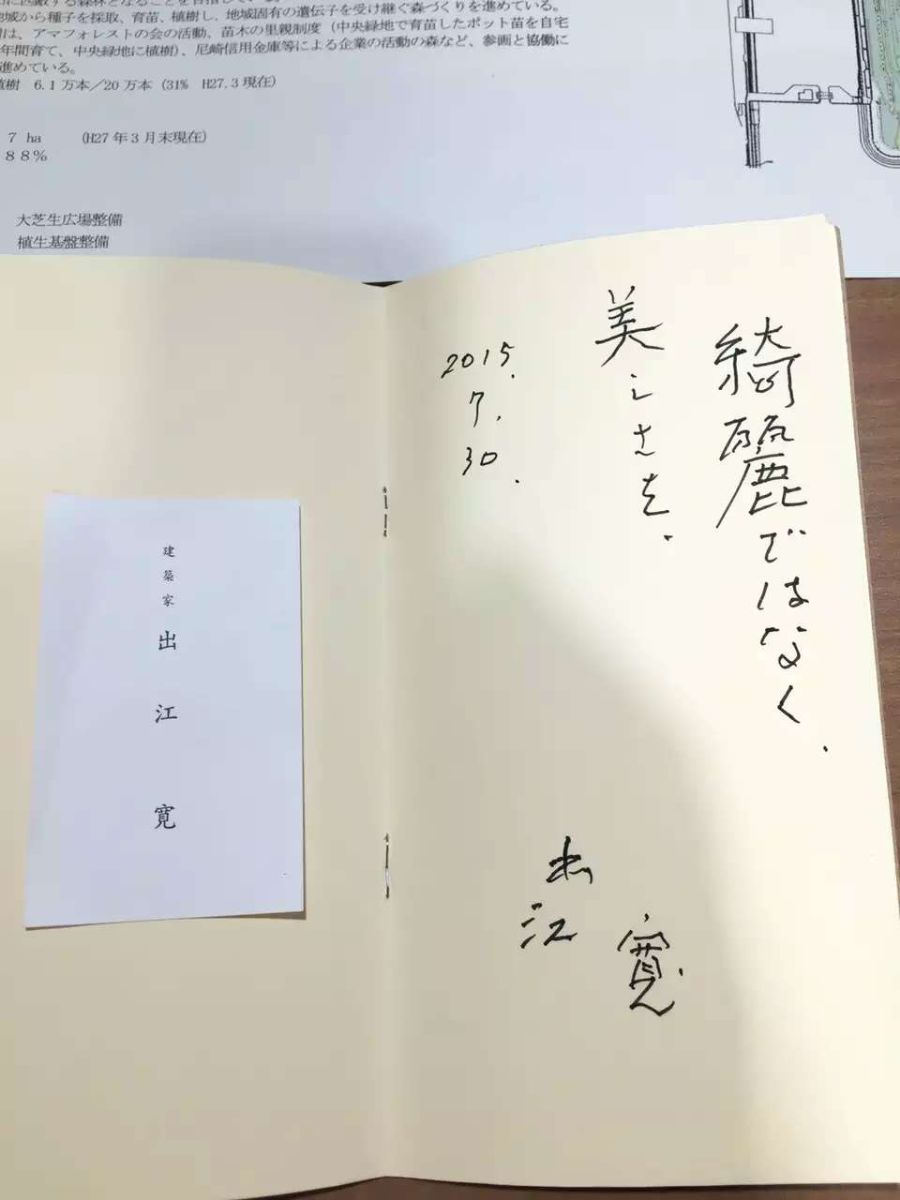 地域から種子を採取、育苗、植樹し、地域固有の遺伝子を受け継ぐ森づくりを進めている。
は、アマフォレストの会の活動、苗木の里親制度（中央緑地で育苗したポット苗を自宅
年間育て、中央緑地に植樹）、尼崎信用金庫等による企業の活動の森など、参画と協働に
進めている。
植樹 6.1万本／20万本（31% H27.3現在）
7 ha （H27年3月末現在）
88%
大芝生広場整備
植生基盤整備
綺麗ではなく.
美しさを.
2015.
7.
30.
出江 寛
建築家 出江 寛